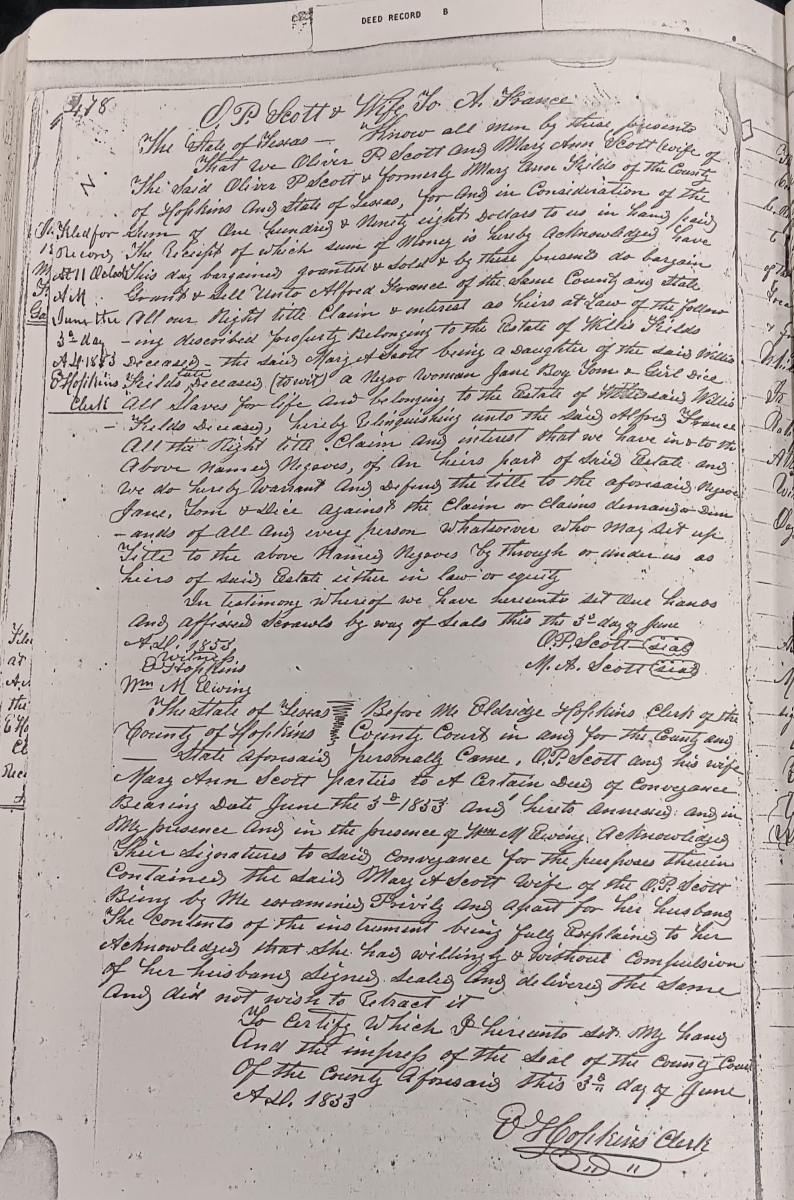 DEED RECORD B
478
O. P. Scott & Wife To A. France
The State of Texas — Know all men by these presents
That we Oliver P Scott and Mary Ann Scott wife of
The Said Oliver P Scott & formerly Mary Ann Fields of the County
of Hopkins And State of Texas, for And in Consideration of the
Sum of One hundred & Ninety eight Dollars to us in hand paid
The Receipt of which sum of Money is hereby Acknowledged have
This day bargained granted & sold & by these presents do bargain
Grant & Sell Unto Alfred France of the Same County and State
All our Right title Claim & interest as heirs at Law of the follow
-ing described property Belonging to the Estate of Willis Fields
Deceased — the said Mary A Scott being a Daughter of the said Willis
Fields late Deceased (to wit) a Negro Woman Jane Boy Tom & Girl Dice
All Slaves for life And belonging to the Estate of said Willis
Fields Deceased, hereby Relinquishing unto the said Alfred France
All the Right title Claim and interest that we have in & to the
Above Named Negroes, of An heirs part of Said Estate and
We do hereby Warrant And Defend the title to the aforesaid Negroes
Jane, Tom & Dice Against the Claim or Claims demand or Dem
-ands of all And every person Whatsoever who May set up
Title to the above Named Negroes by through or under us as
heirs of said Estate either in law or equity
In testimony whereof we have hereunto set Our hands
And affixed Scrawls by way of Seals this the 3d day of June
A.D. 1853
O.P. Scott (seal)
Witness
E Hopkins
M. A. Scott (seal)
Wm M Ewing
Filed for
Record
At 11 Oclock
A.M
June the
3d day
A.D. 1853
E Hopkins
Clerk
The State of Texas Before Me Eldridge Hopkins Clerk of the
County of Hopkins County Court in and for the County and
— State Aforesaid personally Came, O.P. Scott and his wife
Mary Ann Scott parties to A Certain Deed of Conveyance
Bearing Date June the 3d 1853 And hereto Annexed and in
My presence And in the presence of Wm M Ewing Acknowledged
Their Signatures to Said Conveyance for the purposes therein
Contained the said Mary A Scott Wife of the O.P. Scott
Being by Me examined Privily and Apart for her husband
The Contents of the instrument being fully Explained to her
Acknowledged that She had willingly & without Compulsion
of her husband Signed sealed And delivered the Same
And did not wish to Retract it
To Certify Which I hereunto set My hand
And the impress of the Seal of the County Court
Of the County Aforesaid this 3d day of June
A.D. 1853
E Hopkins Clerk